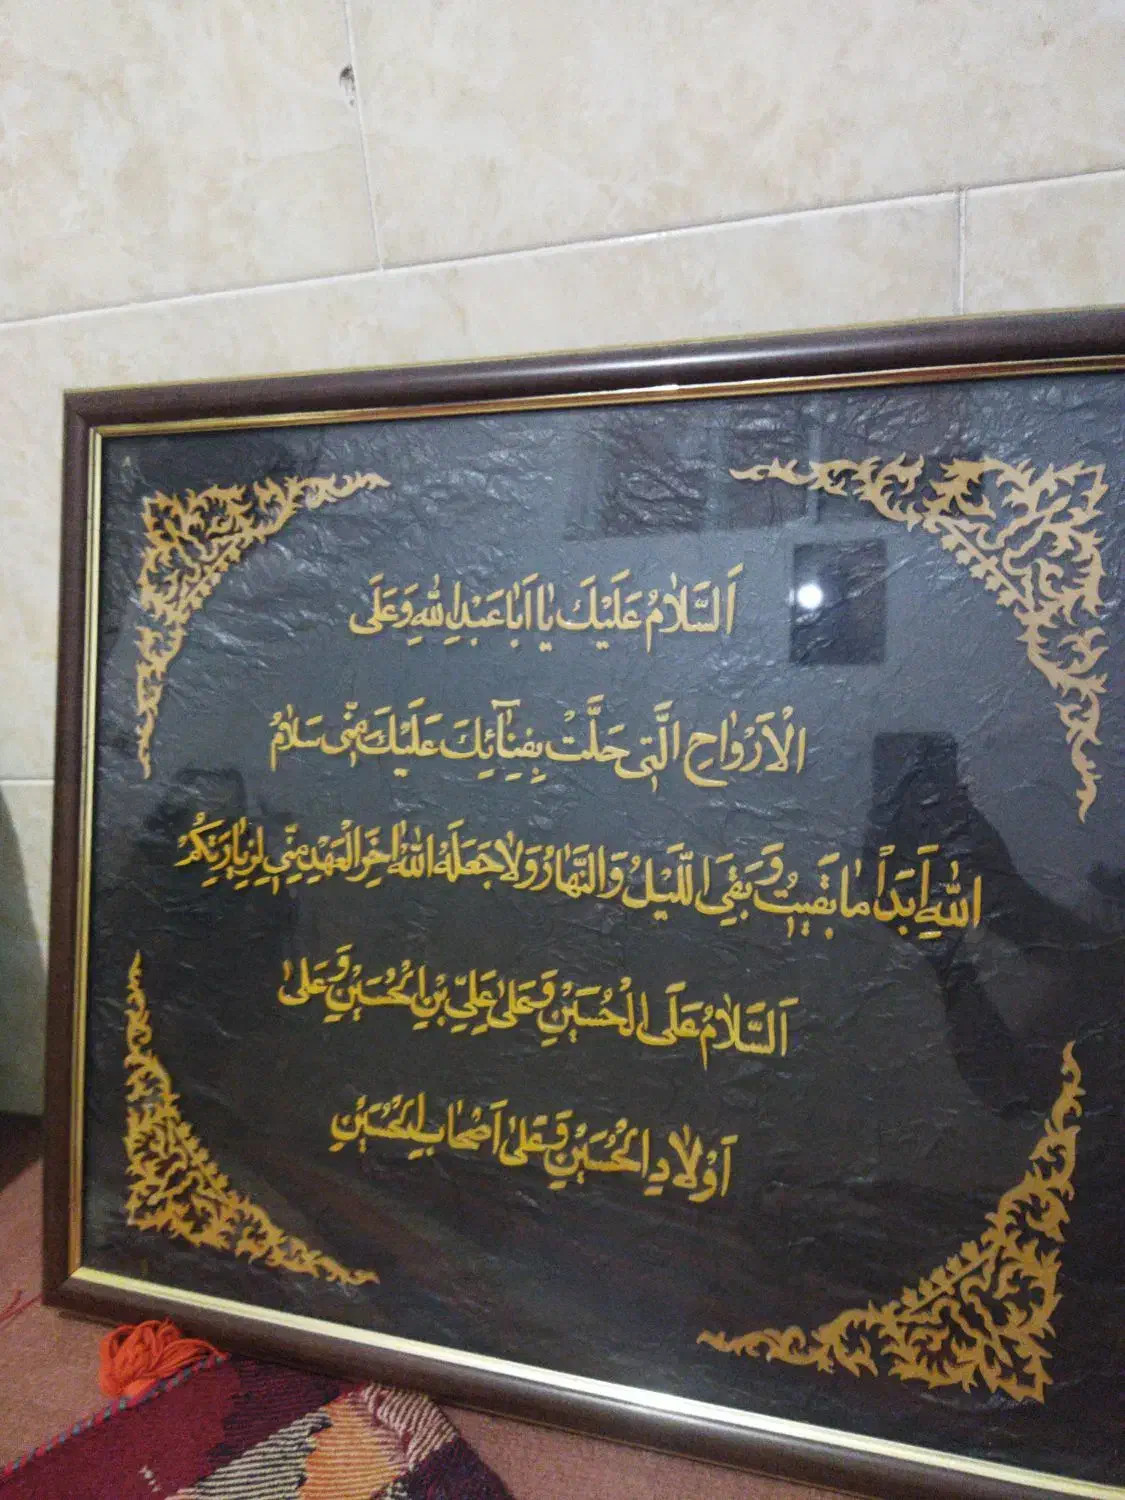 اَلسَّلامُ عَلَیْكَ یا اَبا عَبْدِاللهِ وَ عَلَی
الْاَرْواحِ الَّتی حَلَّتْ بِفِنآئِكَ عَلَیْكَ مِنّی سَلامُ
اللهِ اَبَداً ما بَقیتُ وَ بَقِیَ اللَّیْلُ وَ النَّهارُ وَ لا جَعَلَهُ اللهُ اخِرَ الْعَهْدِ مِنّی لِزِیارَتِكُمْ
اَلسَّلامُ عَلَی الْحُسَیْنِ وَ عَلی عَلِیِّ بْنِ الْحُسَیْنِ وَ عَلی
اَوْلادِ الْحُسَیْنِ وَ عَلی اَصْحابِ الْحُسَیْنِ